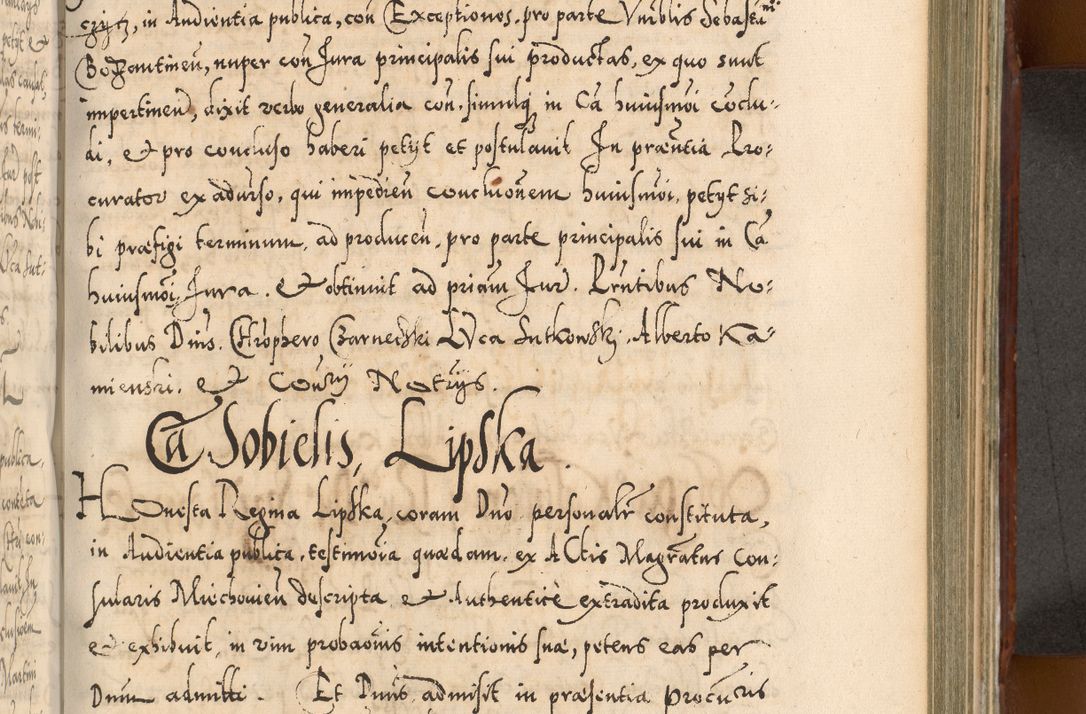 czyh, in Audientia publica, con Exceptiones. pro parte Vnrblis Sebasti
Bozantineñ, nuper con Jura principalis sui productas, ex quo sunt
impertineñ, dixit verbo generalia con. simulq in Ca huiusmoi coclu-
di, et pro concluso haberi petyt et postulauit In præntia Pro-
curator ex aduerso, qui impedien conclusionem huiusmoi, petyt si-
bi præfigi terminum, ad producen. pro parte principalis sui in Ca
huiusmoi Jura. Et obtinuit ad priam Jur. Prntibus No-
bilibus Dnis. Chrophero Czarnecki Luca Lutkowski. Alberto Ka-
mienski. et Coury Notrys.
Ca Sobielis, Lipska.
HOnesta Regina Lipska, coram Dno personalr constituta,
in Audientia publica, testimoia quædam. ex Actis Magratus Con-
sularis Miechouien descripta et Authenticè extradita produxit
et exhibuit, in vim probaonis intentionis suæ, petens eas per
Dnum admitti. Et Dnus admisit in præsentia Procuris